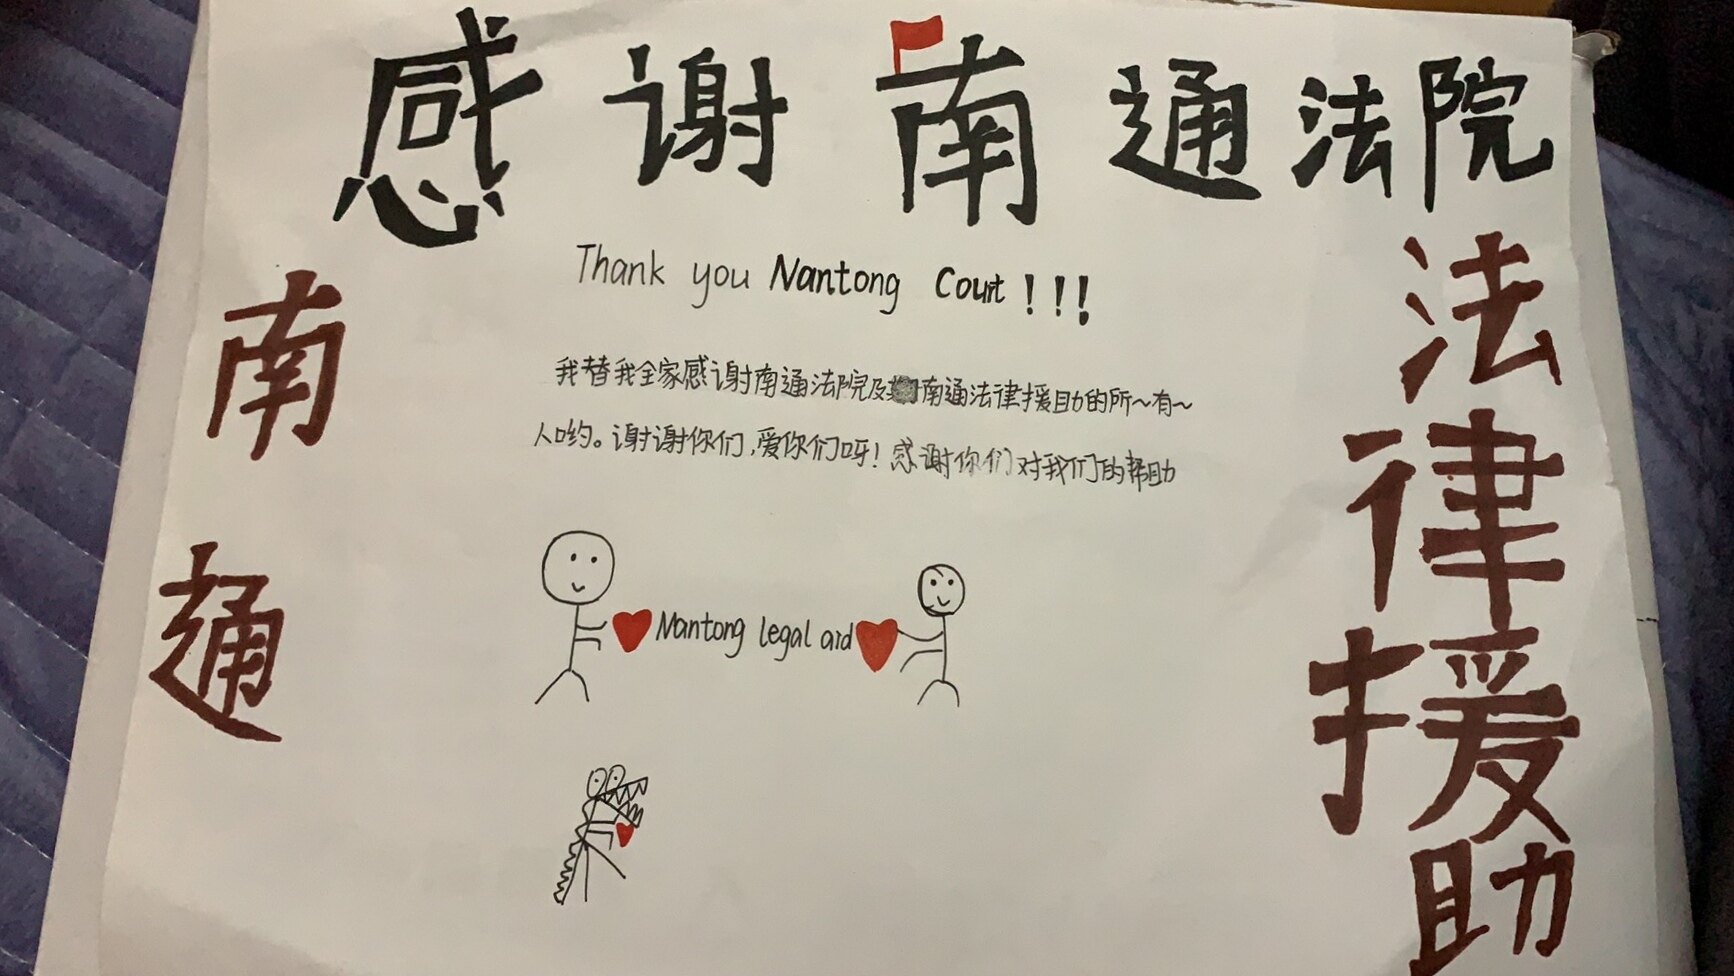 感谢南通法院
Thank you Nantong Court!!!
南通
法律援助
我替我全家感谢南通法院及南通法律援助的所~有~
人哟。谢谢你们,爱你们呀!感谢你们对我们的帮助
Nantong legal aid